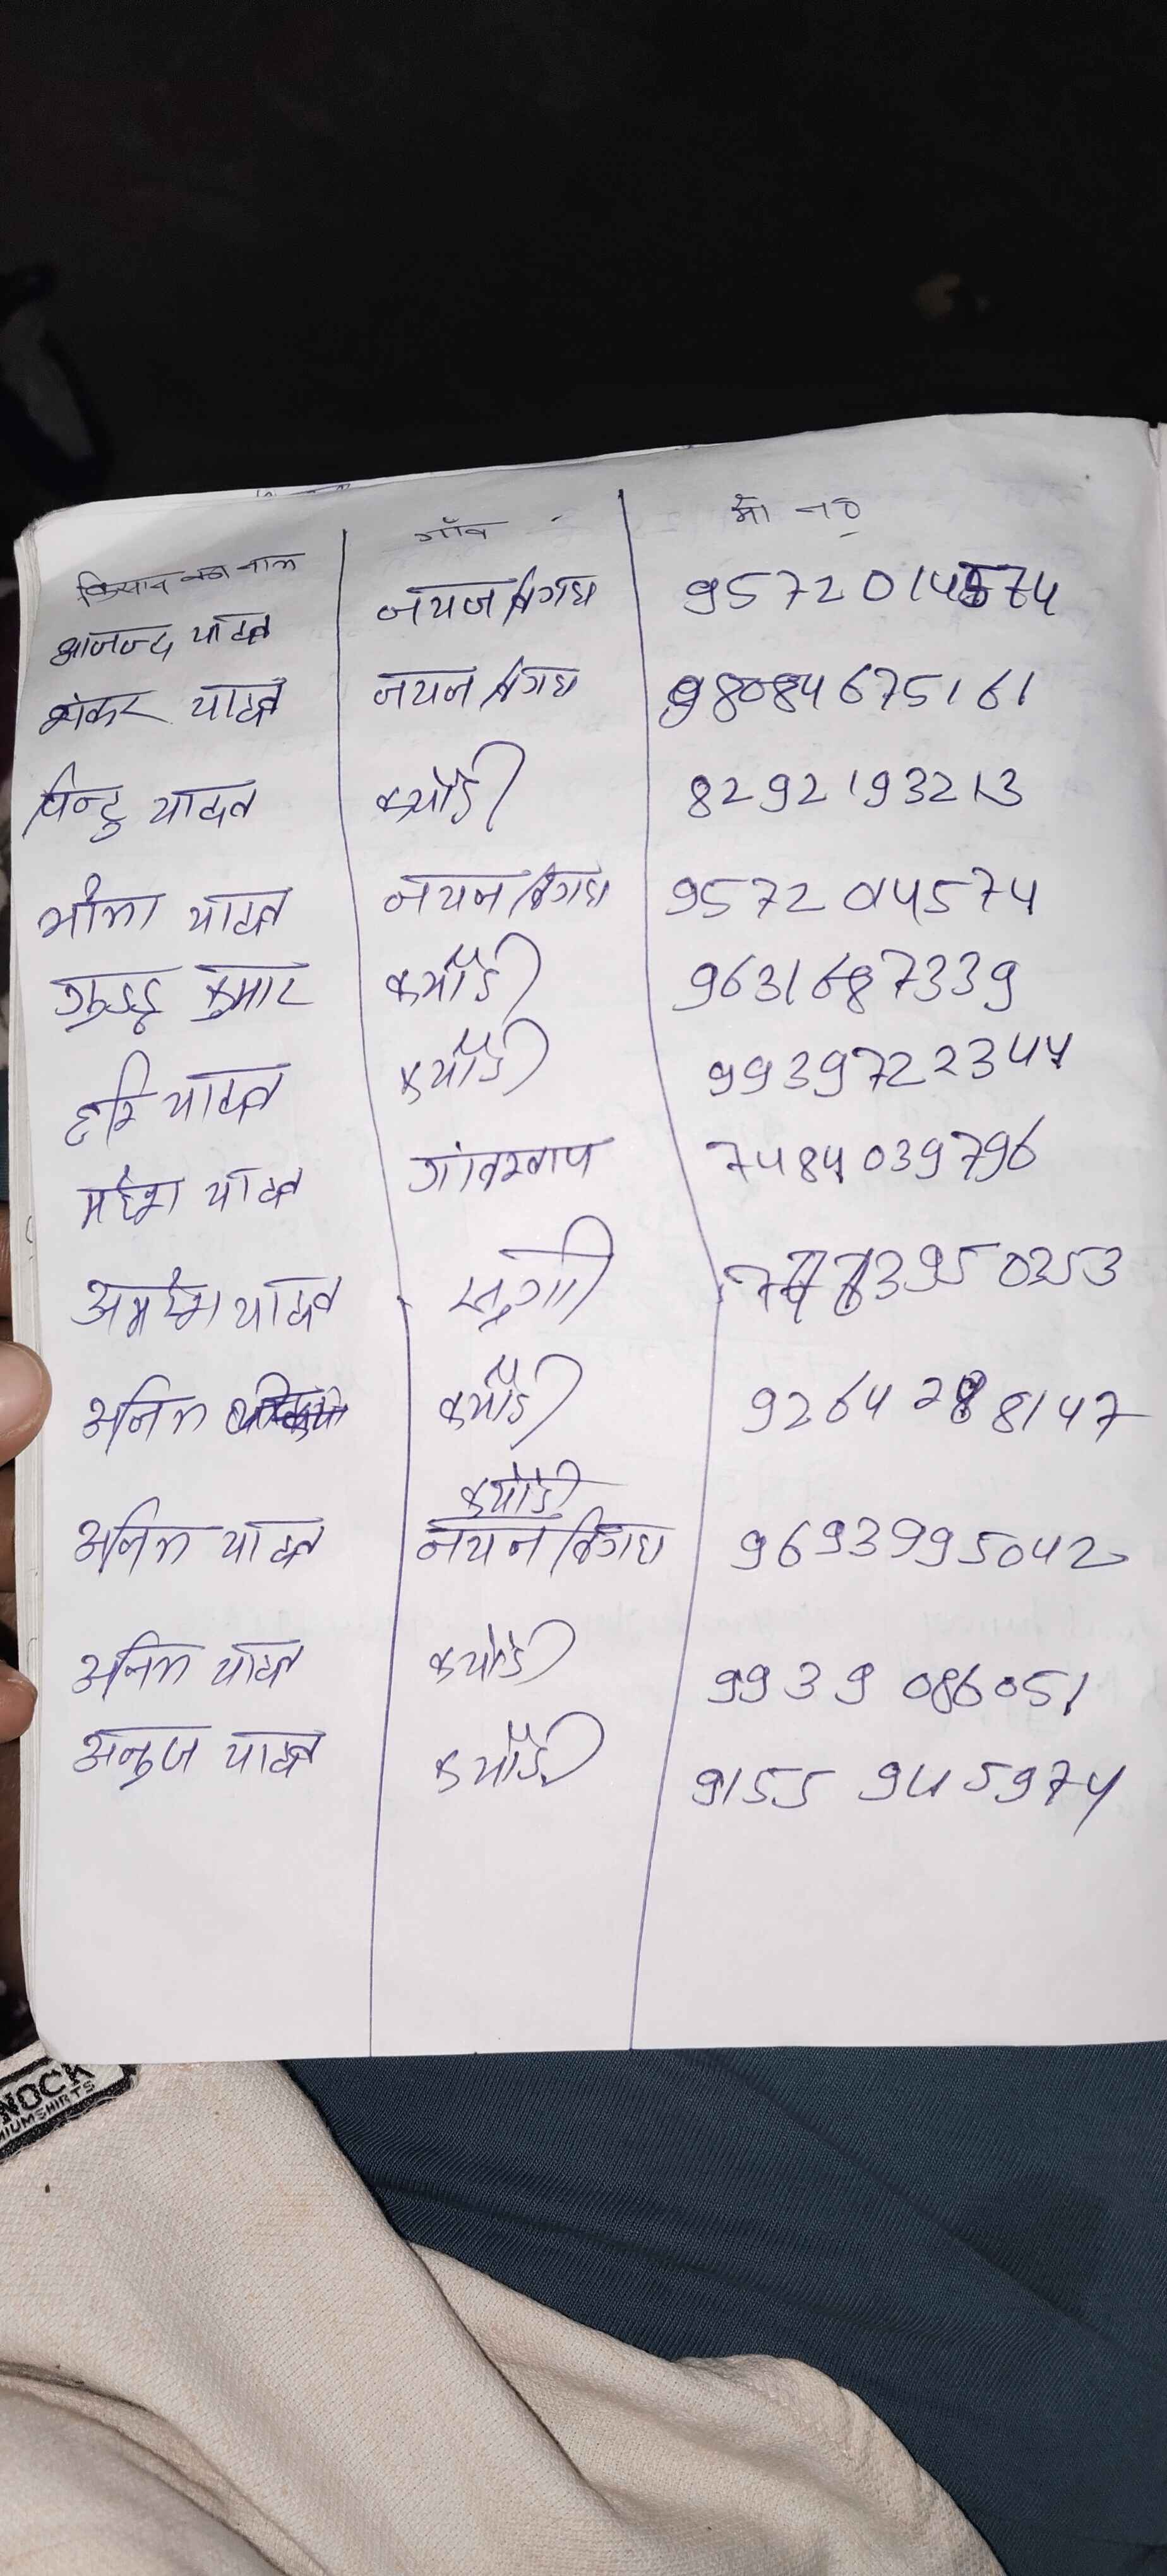 किसान का नाम गाँव मो न०
आनन्द यादव नयन बिगहा 9572014574
शंकर यादव नयन बिगहा 98084675161
पिन्टु यादव कर्मोडी 8292193213
भोला यादव नयन बिगहा 9572014574
गुड्डू कुमार कर्मोडी 9631687339
हरि यादव कर्मोडी 9939722344
महेश यादव 7484039796
अमरेश यादव 3950253
अनिल कर्मोडी 9264288147
कर्मोडी
अनिल यादव नयन बिगहा 9693995042
अनिल यादव कर्मोडी 9939086051
अनुज यादव कर्मोडी 9155945974
NOCK
MIUMSHIRTS